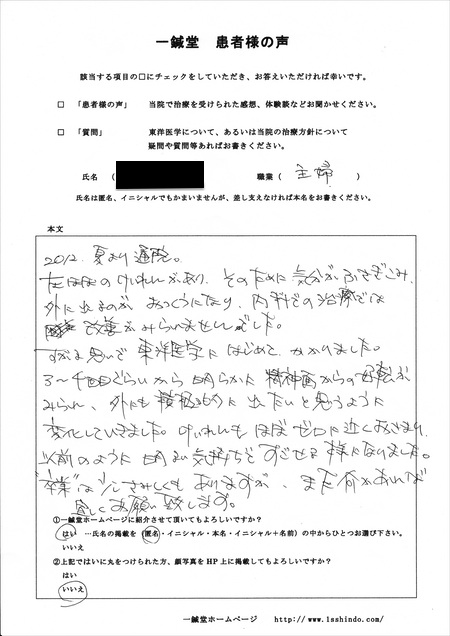 一鍼堂 患者様の声
該当する項目の□にチェックをしていただき、お答えいただければ幸いです。
□ 「患者様の声」 当院で治療を受けられた感想、体験談などお聞かせください。
□ 「質問」 東洋医学について、あるいは当院の治療方針について
疑問や質問等あればお書きください。
氏名 ( 職業( 主婦 )
氏名は匿名、イニシャルでもかまいませんが、差し支えなければ本名をお書きください。
本文
2012.夏より通院。
左ほほのけいれんがあり、そのために気分がふさぎこみ、
外に出るのが おっくうになり、内科での治療では
改善がみられませんでした。
すがる思いで東洋医学に はじめて かかりました。
3〜4回ぐらいから 明らかに 精神面からの好転が
みられ、外にも積極的に出たいと思うように
変化していきました。けいれんも ほぼ ゼロに近くおさまり、
以前のように 明るい気持ちで すごせる様になりました。
"卒業"は少しさみしくも ありますが、また何かあれば
宜しくお願い致します。
①一鍼堂ホームページに紹介させて頂いてもよろしいですか？
はい …氏名の掲載を (匿名・イニシャル・本名・イニシャル＋名前) の中からひとつお選び下さい。
いいえ
②上記ではいに丸をつけられた方、顔写真をHP上に掲載してもよろしいですか？
はい
いいえ
一鍼堂ホームページ http://www.1sshindo.com/